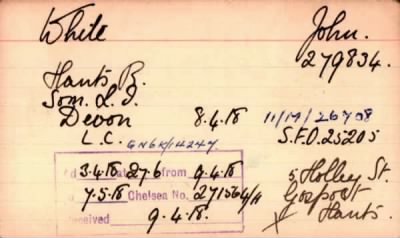 White John.
279834.
Hants R.
Som. L.I.
Devon 8.4.18 11/M/26708
L.C. 6N6K/14247 S.F.O.25205
3.4.18 at 27.6 from 9.4.18
7.5.18 Chelsea No. 271564/H
received 9.4.18.
5 Holley St.
Gosport
Hants.